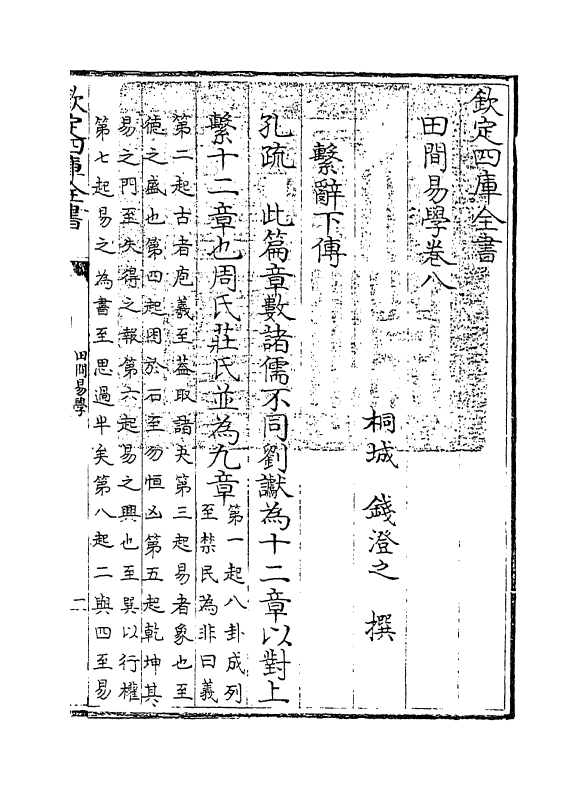 欽定四庫全書
田間易學卷八
桐城 錢澄之 撰
繫辭下傳
孔疏 此篇章數諸儒不同劉瓛為十二章以對上
繫十二章也周氏莊氏並為九章
第一起八卦成列
至禁民為非曰義
第二起古者庖羲至蓋取諸夬第三起易者象也至
德之盛也第四起困於石至勿恒凶第五起乾坤其
易之門至失得之報第六起易之興也至巽以行權
第七起易之為書至思過半矣第八起二與四至易
欽定四庫全書
田間易學